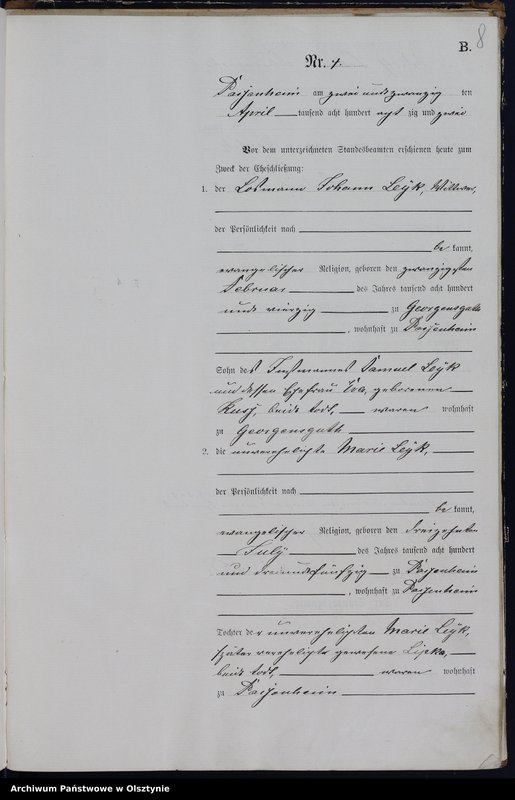 8
B.
Nr. 7.
Passenheim am zwei und zwanzig ten
April tausend acht hundert acht zig und zwei
Vor dem unterzeichneten Standesbeamten erschienen heute zum
Zweck der Eheschließung:
1. der Losmann Johann Leyk, Wittwer,
der Persönlichkeit nach
be kannt,
evangelischer Religion, geboren den zwanzigsten
Februar des Jahres tausend acht hundert
und vierzig zu Georgensguth
, wohnhaft zu Passenheim
Sohn des Instmannes Samuel Leyk
und dessen Ehefrau Eva, geborenen
beide todt, waren wohnhaft
zu Georgensguth
2. die unverehelichte Marie Leyk,
der Persönlichkeit nach
be kannt,
evangelischer Religion, geboren den dreizehnten
July des Jahres tausend acht hundert
und dreiundfünfzig zu Passenheim
, wohnhaft zu Passenheim
Tochter der unverehelichten Marie Leyk,
später verehelichte gewesene Lipka,
beide todt, waren wohnhaft
zu Passenheim
Archiwum Państwowe w Olsztynie